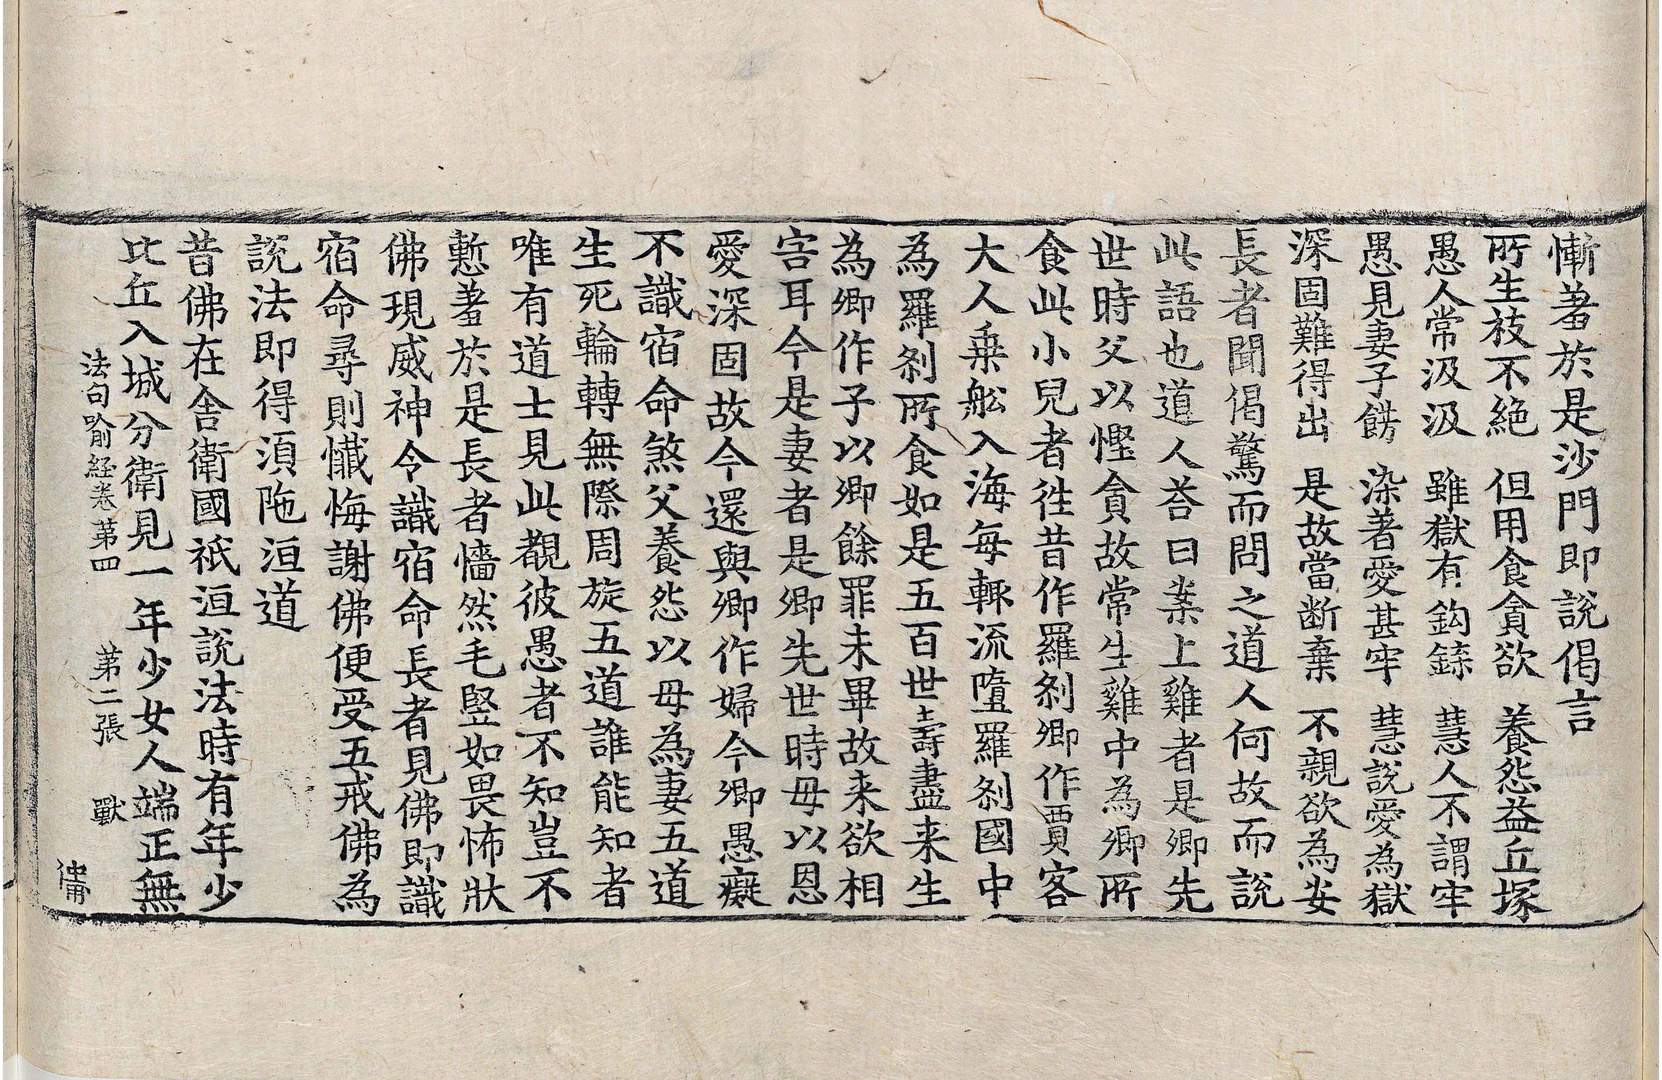 慚著於是沙門即說偈言
所生枝不絕　但用食貪欲　養怨益丘塚
愚人常汲汲　雖獄有鈎鎍　慧人不謂牢
愚見妻子餝　染著愛甚牢　慧說愛為獄
深固難得出　是故當断棄　不親欲為安
長者聞偈驚而問之道人何故而說
此語也道人荅曰案上雞者是卿先
世時父以慳貪故常生雞中為卿所
食此小兒者徃昔作羅刹卿作賈客
大人乗舩入海每輙流墮羅刹國中
為羅刹所食如是五百世壽盡来生
為卿作子以卿餘罪未畢故来欲相
害耳今是妻者是卿先世時母以恩
愛深固故今還與卿作婦今卿愚癡
不識宿命煞父養怨以母為妻五道
生死輪轉無際周旋五道誰能知者
唯有道士見此覩彼愚者不知豈不
慙著於是長者㦗然毛竪如畏怖狀
佛現威神令識宿命長者見佛即識
宿命尋則懺悔謝佛便受五戒佛為
說法即得湏陁洹道
昔佛在舎衛國祇洹說法時有年少
比丘入城分衛見一年少女人端正無
法句喻経卷第四　第二張　獸